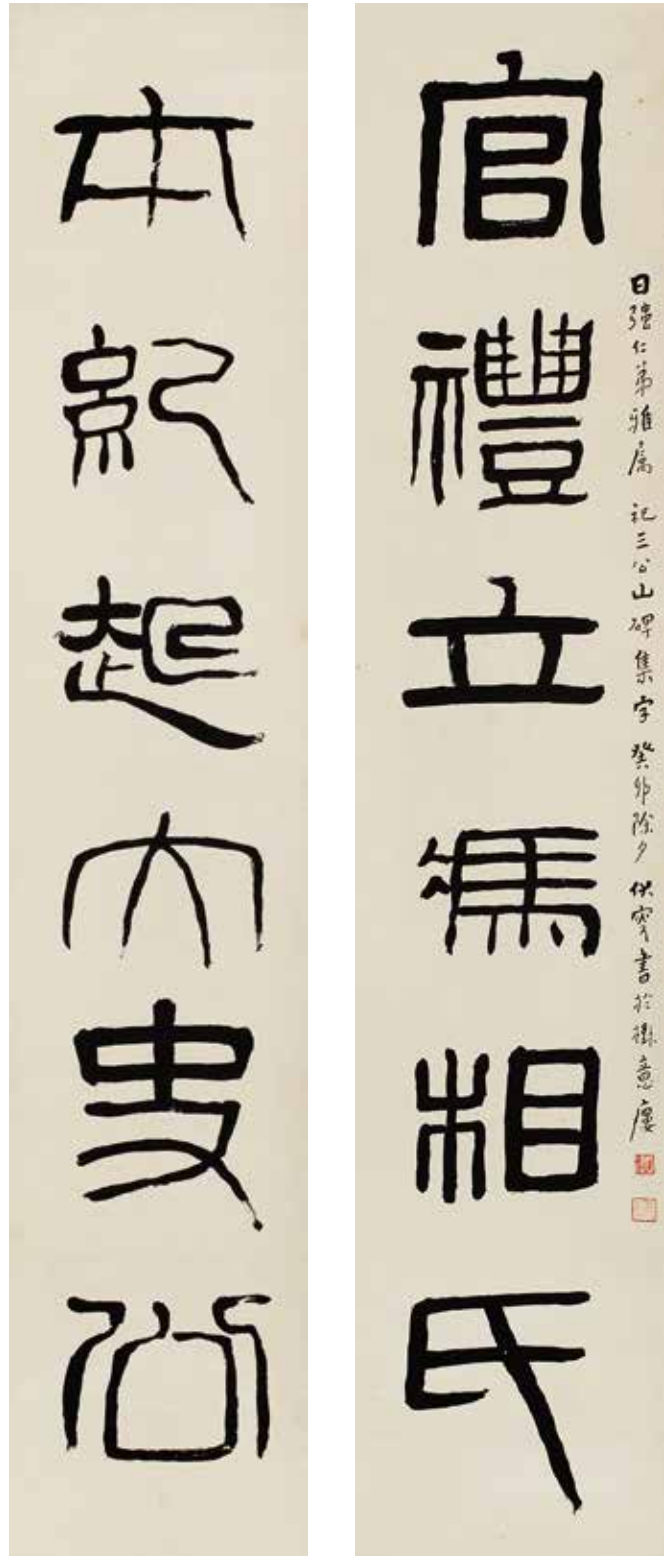 官禮立馮相氏
日强仁弟雅属 祀三公山碑集字 癸卯除夕 書於意廔
本紀起大史公